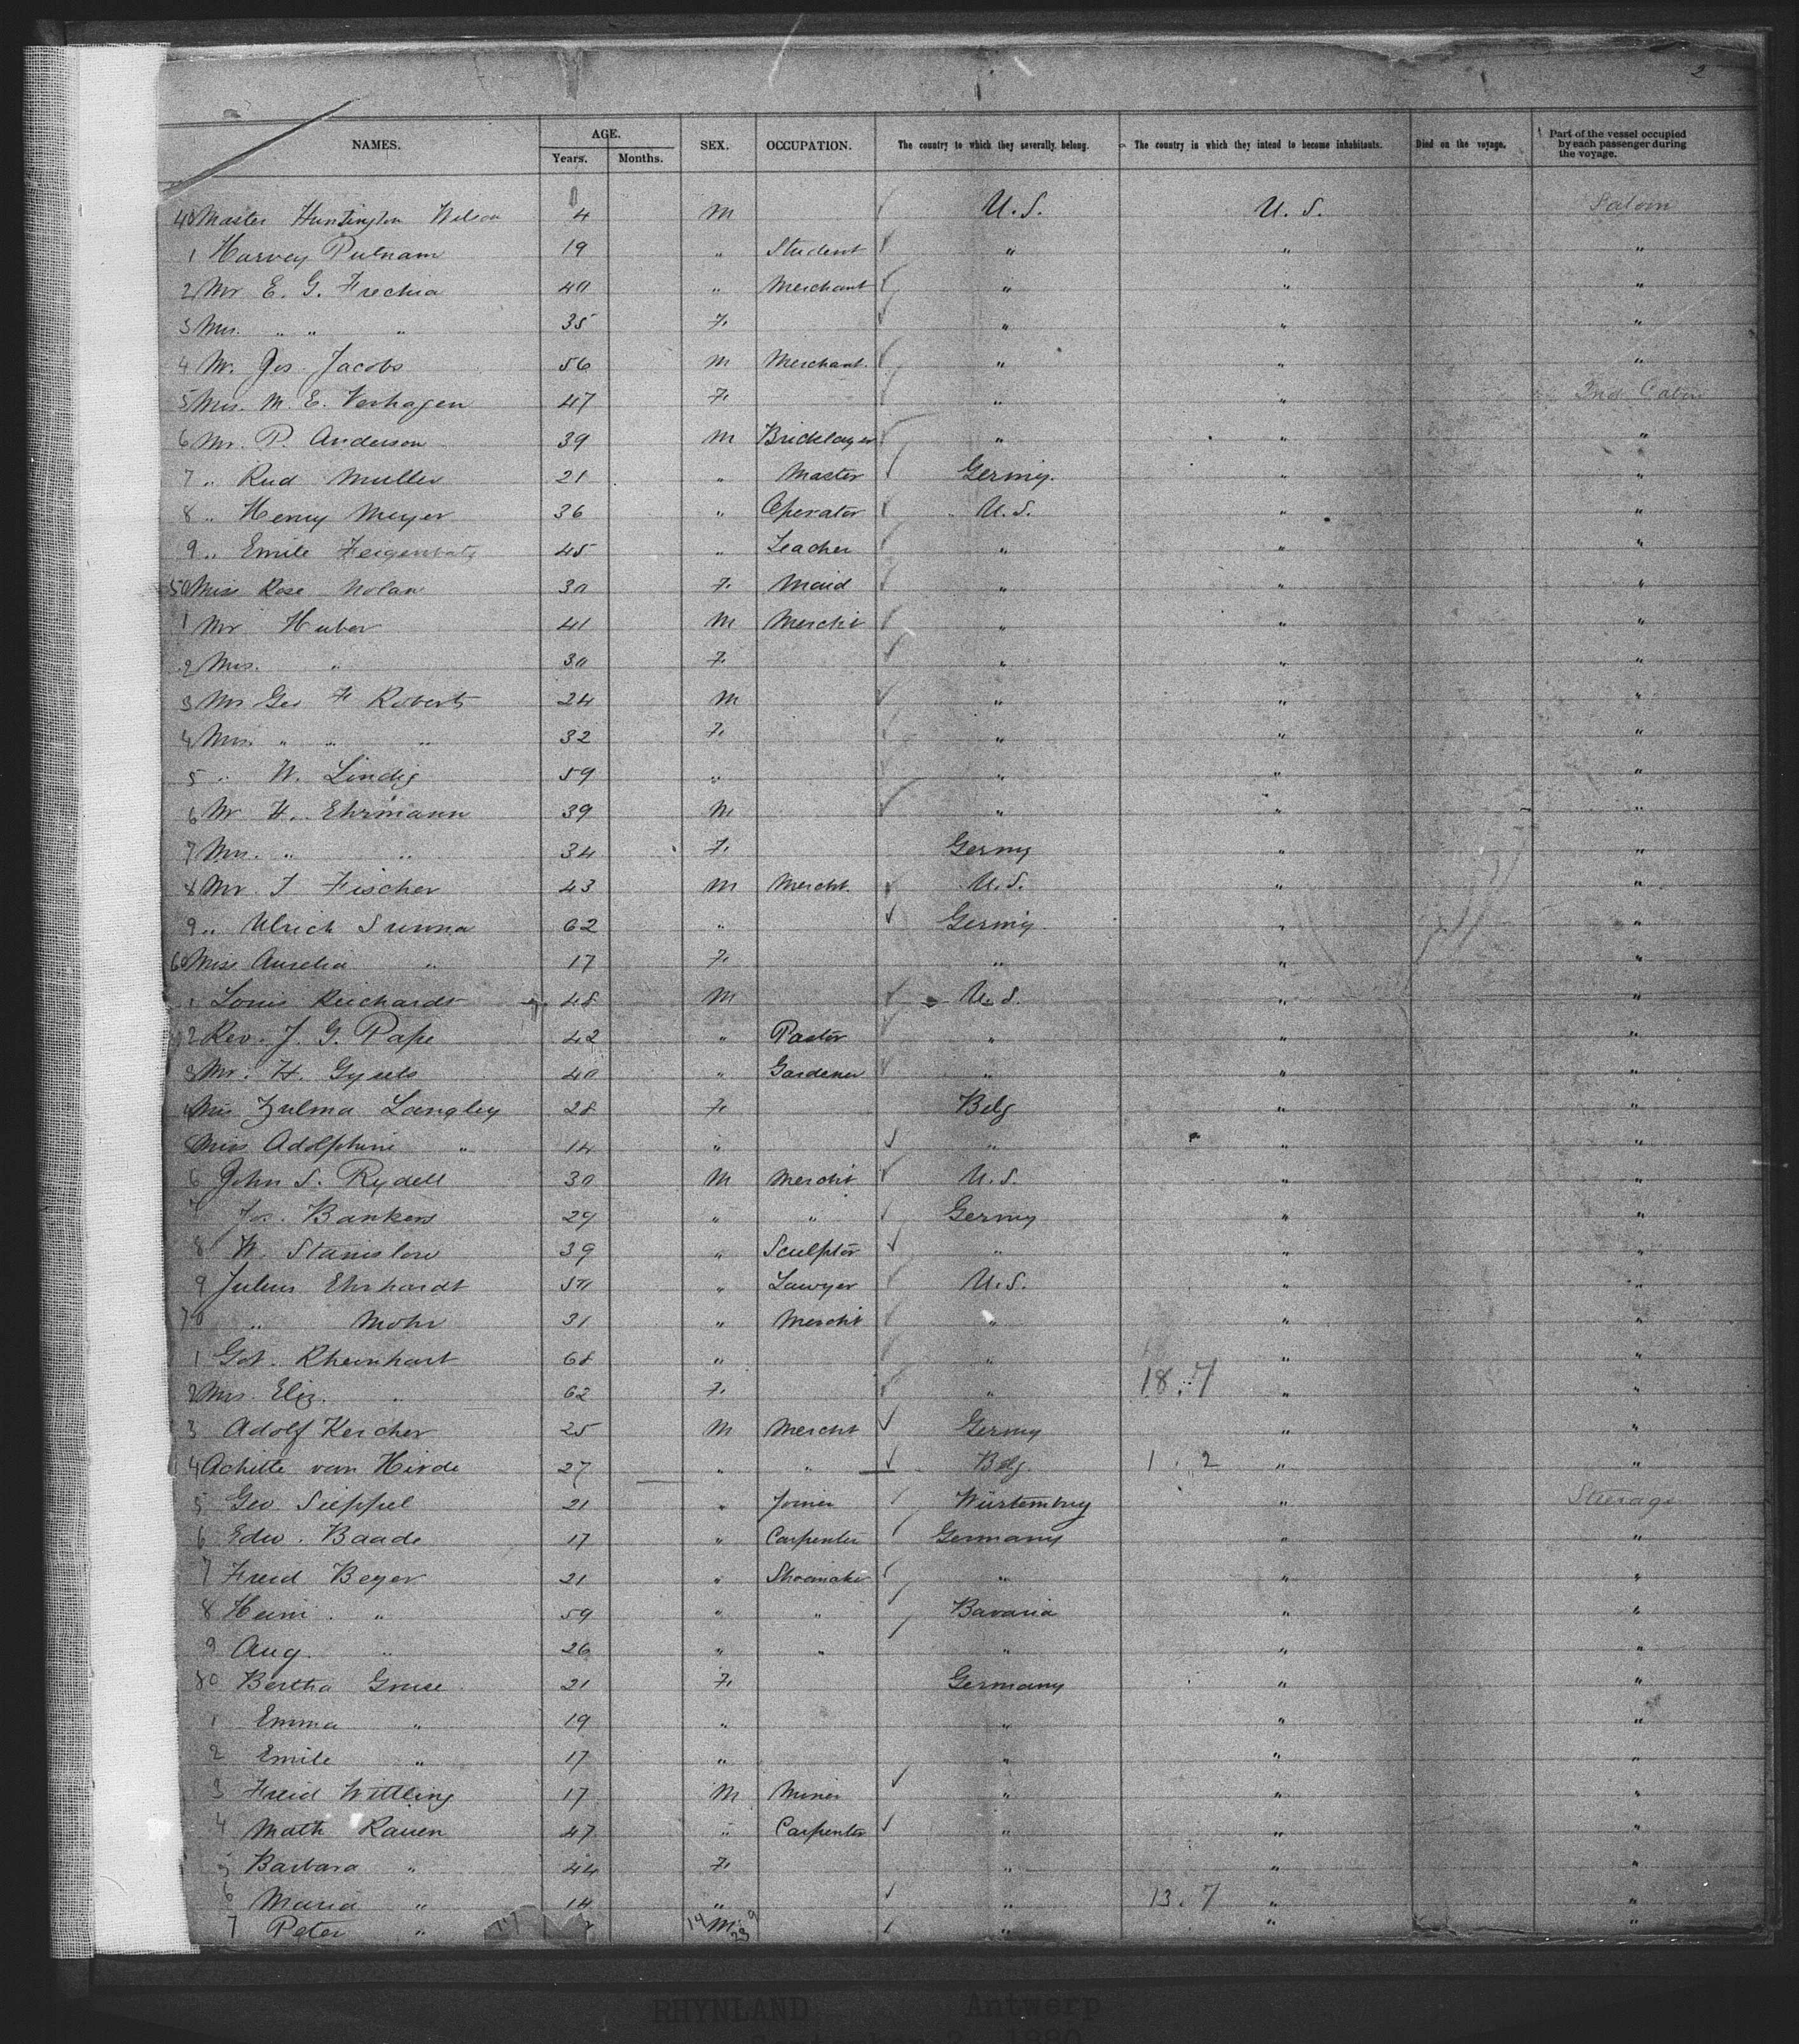 2
NAMES. AGE. SEX. OCCUPATION. The country to which they severally belong. The country in which they intend to become inhabitants. Died on the voyage. Part of the vessel occupied by each passenger during the voyage.
Years. Months.
40 Master Huntington Wilson 4 M U.S. U.S. Saloon
1 Harvey Putnam 19 " Student " " "
2 Mr E. G. Frechia 40 " Merchant " " "
3 Mrs. " " " 35 F. " " "
4 Mr. Jos. Jacobs 56 M Merchant. " " "
5 Mrs. M. E. Verhagen 47 F. " " 2nd Cabin
6 Mr. P. Anderson 39 M Bricklayer " " "
7 " Rud Muller 21 " Master Germy. " "
8 " Henry Meyer 36 " Operator " U.S. " "
9 " Emile 45 " Teacher " " "
50 Miss Rose Nolan 30 F. Maid " " "
1 Mr Huber 41 M Mercht " " "
2 Mrs. " 30 F. " " "
3 Mr Geo F Roberts 24 M " " "
4 Mrs. " " " 32 F. " " "
5 " W. Lindig 59 " " " "
6 Mr H. Ehrmann 39 M " " "
7 Mrs. " " 34 F. Germy " "
8 Mr. J Fischer 43 M Mercht. U.S. " "
9 " Ulrich Sunna 62 " Germy. " "
60 Miss Aurelia " 17 F. " " "
1 Louis Reichardt 48 M U.S. " "
2 Rev. J. G. Pape 42 " Pastor " " "
3 Mr. H. Gysels 40 " Gardener " " "
4 Mrs Zulma Langley 28 F. Belg " "
5 Miss Adolphine " 14 " " " "
6 John S. Rydell 30 M Mercht U.S. " "
7 Jos. Bankers 29 " " Germy " "
8 W. Stanislow 39 " Sculptor " " "
9 Julius Ehrhardt 50 " Lawyer U.S. " "
70 " Mohr 31 " Mercht " " "
1 Got. Rheinhart 68 " " " "
2 Mrs. Eliz. " 62 F. " 18.7 " "
3 Adolf Kercher 25 M Mercht Germy " "
4 Achille van Hirde 27 " " Belg. 1 . 2 " "
5 Geo Sieppel 21 " Joiner Würtembrg " Steerage
6 Edw. Baade 17 " Carpenter Germany " "
7 Fried Beyer 21 " Shoemaker " " "
8 Heini. " 59 " " Bavaria " "
9 Aug. " 26 " " " " "
80 Bertha Gruse 21 F. Germany " "
1 Emma " 19 " " " "
2 Emile " 17 " " " "
3 Fried Wittling 17 M Miner " " "
4 Math Rauen 47 " Carpenter " " "
5 Barbara " 44 F. " " "
6 Maria " 14 " " 13.7 " "
7 Peter " M. " " "
RHYNLAND Antwerp
September 2, 1880